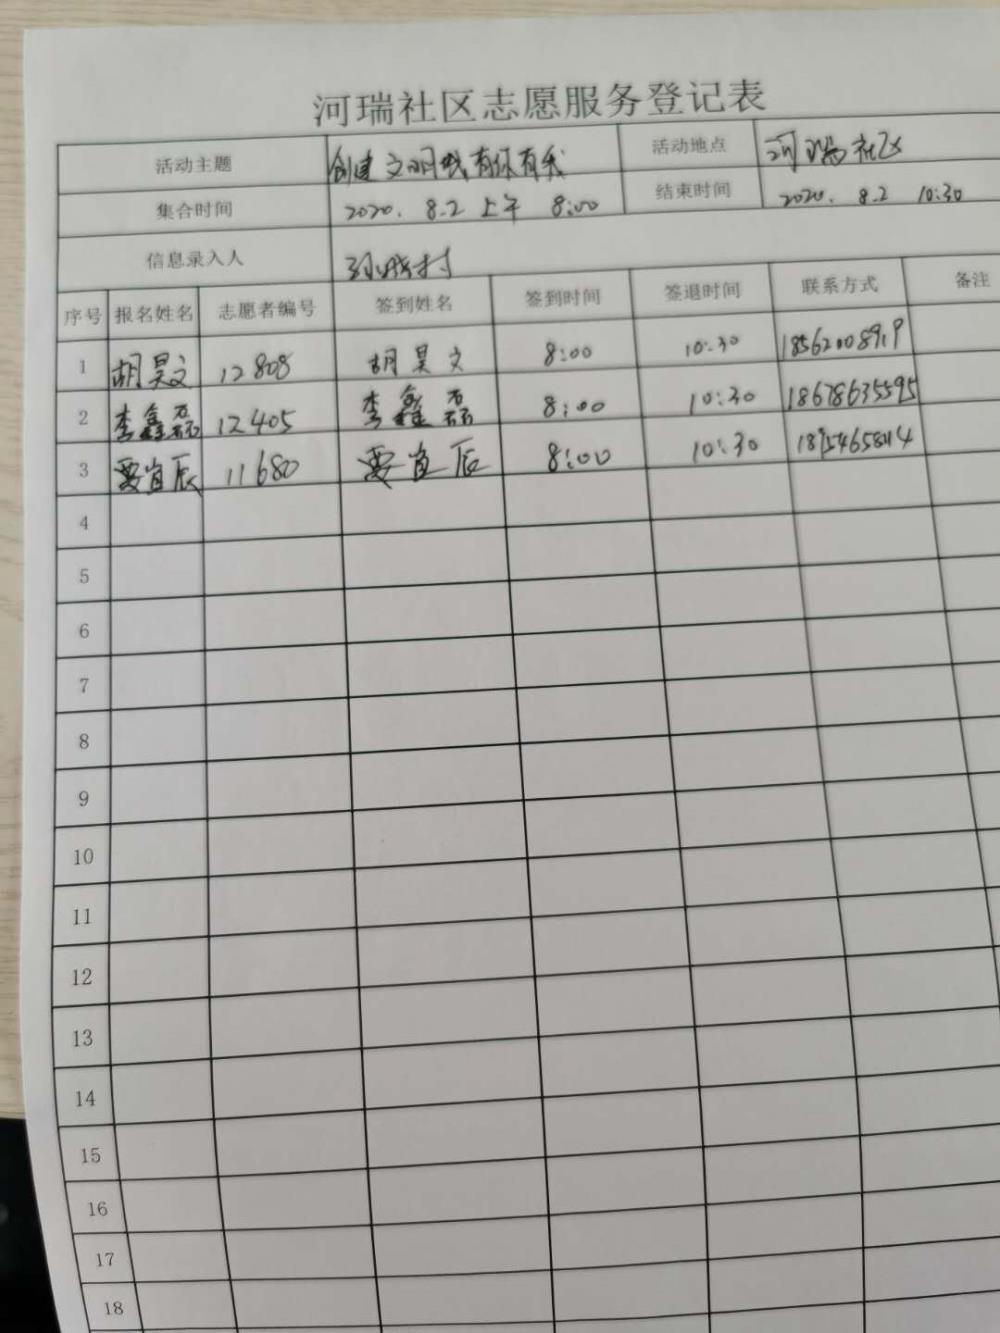 河瑞社区志愿服务登记表
活动主题 创建文明城有你有我 活动地点 河瑞社区
集合时间 2020. 8.2 上午 8:00 结束时间 2020. 8.2 10:30
信息录入人
序号 报名姓名 志愿者编号 签到姓名 签到时间 签退时间 联系方式 备注
1 胡昊文 12808 胡昊文 8:00 10:30
2 李鑫磊 12405 李鑫磊 8:00 10:30 18678635595
3 11680 8:00 10:30
4
5
6
7
8
9
10
11
12
13
14
15
16
17
18